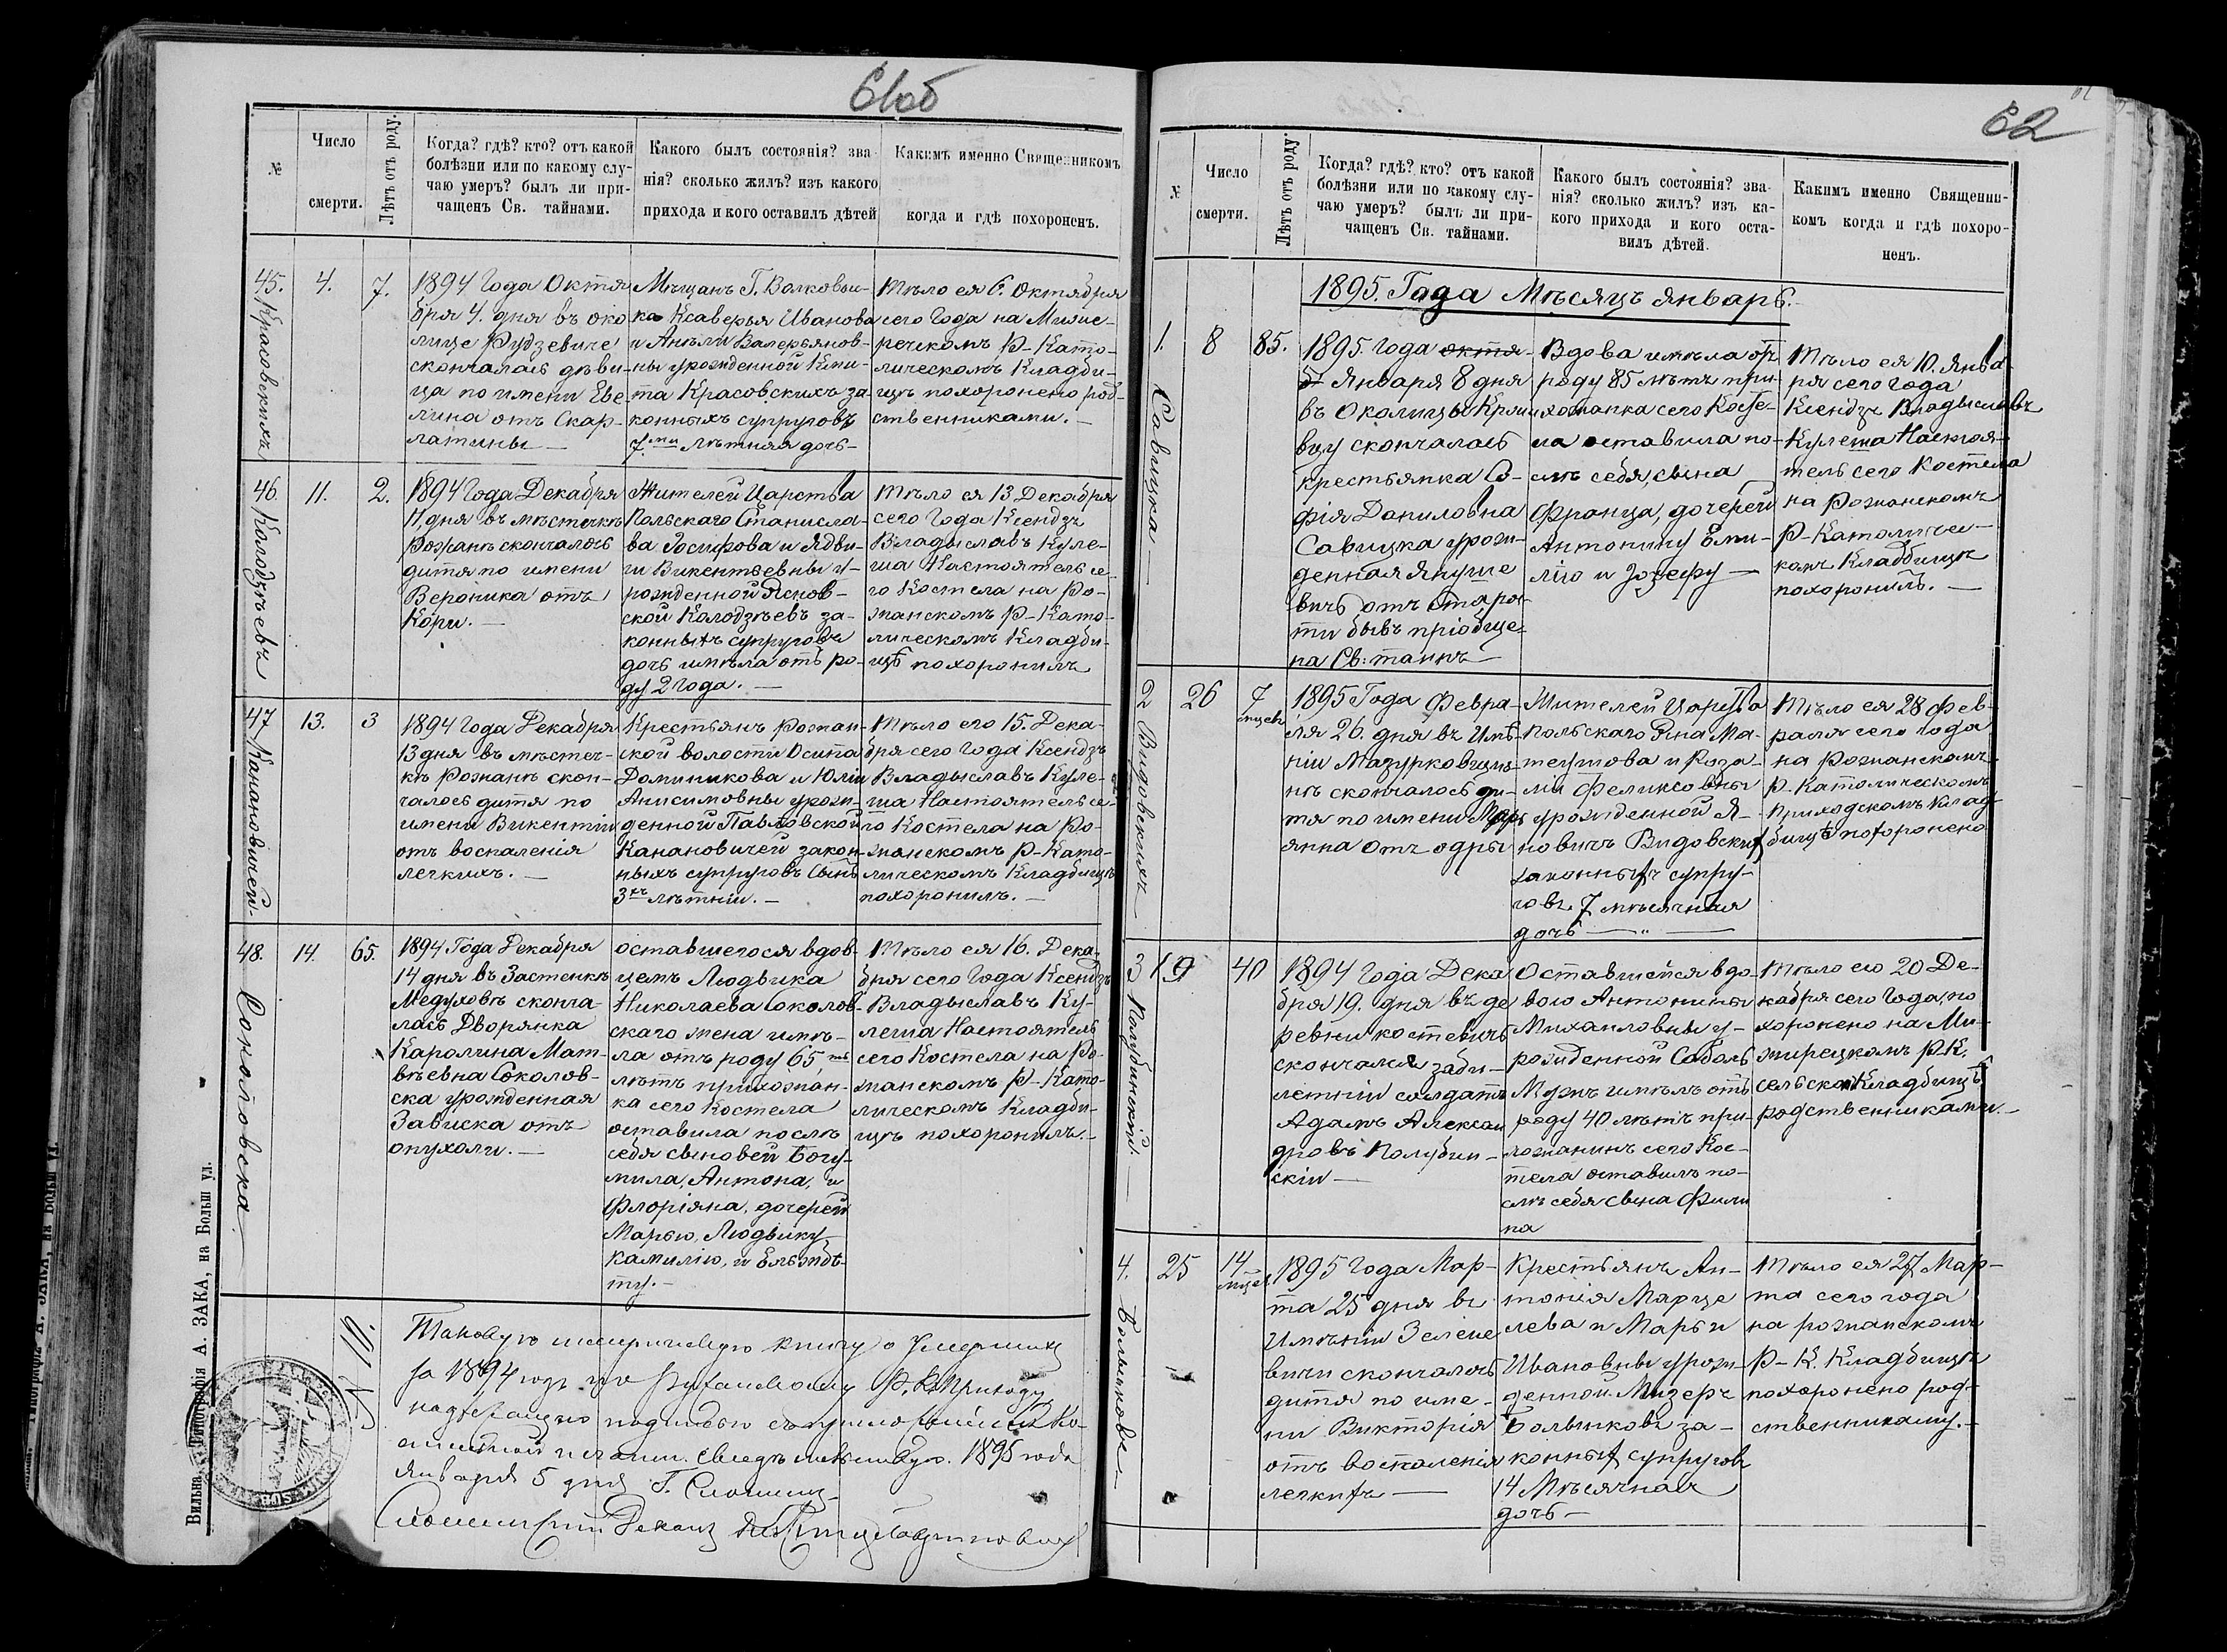 61об
№
Число
смерти.
Лѣтъ отъ роду.
Когда? гдѣ? кто? отъ какой
болѣзни или по какому слу-
чаю умеръ? былъ ли при-
чащенъ Св. тайнами.
Какого былъ состоянія? зва-
нія? сколько жилъ? изъ какого
прихода и кого оставилъ дѣтей
Какимъ именно Священникомъ
когда и гдѣ похороненъ.
45. Красовскихъ
4.
7.
1894 Года Октя
бря 4. дня въ око
лице Рудзевиче
скончалась дѣви-
ца по имени Еве-
лина отъ Скар-
латины —
Мѣщанъ Г. Волковыс-
ка Ксаверья Иванова
и Анѣли Валерьянов-
ны урожденной Кми-
та Красовскихъ за-
конныхъ супруговъ
7.ми лѣтняя дочь —
Тѣло ея 6. Октября
сего Года на Мижие-
речскомъ Р-Като-
лическомъ Кладби-
щѣ похоронено род-
ственниками. —
46. Колодзѣевъ
11.
2.
1894 Года Декабря
11, дня въ мѣстечкѣ
Рожанѣ скончалось
дитя по имени
Вероника отъ
Кори. —
Жителей Царства
Польскаго Станисла-
ва Іосифова и Ядви-
ги Викентьевны у-
рожденной Яснов-
ской Колодзѣевъ за-
конныхъ супруговъ
дочь имѣла отъ ро-
ду 2 года. —
Тѣло ея 13 Декабря
сего Года Ксендзъ
Владыславъ Куле-
ша Настоятель се-
го Костела на Ро-
жанскомъ Р-Като-
лическомъ Кладби-
щѣ похоронилъ
47 Канановичей.
13.
3
1894 Года Декабря
13 дня въ мѣстеч-
кѣ Рожанѣ скон-
чалось дитя по
имени Викентій
отъ воспаленія
легкихъ. —
Крестьянъ Рожан-
ской волости Осипа
Доминикова и Юліи
Анисимовны урож-
денной Павловской
Канановичей закон-
ныхъ супруговъ сынъ
3хъ лѣтній. —
Тѣло его 15. Дека-
бря сего года Ксендзъ
Владыславъ Куле-
ша Настоятель се-
го Костела на Ро-
жанскомъ Р-Като-
лическомъ Кладбищѣ
похоронилъ. —
48. Соколовска
14.
65.
1894 Года Декабря
14 дня въ Застенкѣ
Медуховѣ сконча-
лась Дворянка
Каролина Мат-
вѣевна Соколов-
ска урожденная
Зависка отъ
опухоли. —
оставшегося вдов-
цемъ Людвика
Николаева Соколов-
скаго жена имѣ-
ла отъ роду 65,ть
лѣтъ прихожан-
ка сего Костела
оставила послѣ
себя сыновей Богу-
мила, Антона, и
Флоріяна, дочерей
Марью, Людвику
Камилію, и Ельзбѣ-
ту. —
Тѣло ея 16. Дека-
бря сего Года Ксендзъ
Владыславъ Ку-
леша Настоятель
сего Костела на Ро-
жанскомъ Р-Като-
лическомъ Кладби-
щѣ похоронилъ. —
№ 10.
Таковую метрическую книгу о Умершихъ
за 1894 годъ по Ружанскому Р. К. Приходу
надлежащею подписью съ приложеніемъ
печати свидѣтельствую. 1895 года
Января 5 дня Г. Слонимъ
Слонимскій Деканъ
Вильна Типографія А. ЗАКА, на Больш ул.
62
№
Число
смерти.
Лѣтъ отъ роду
Когда? гдѣ? кто? отъ какой
болѣзни или по какому слу-
чаю умеръ? былъ ли при-
чащенъ Св. тайнами.
Какого былъ состоянія? зва-
нія? сколько жилъ? изъ ка-
кого прихода и кого оста-
вилъ дѣтей.
Какимъ именно Священни-
комъ когда и гдѣ похоро-
ненъ.
1895. Года Мѣсяцъ Январь.
1. Савицка
8
85.
1895. года октя-
б Января 8 дня
въ Околицы Крши
вцу скончалась
крестьянка Со-
фія Даниловна
Савицка урож-
денная Януше
вичъ отъ старос-
ти бывъ пріобще-
на Св: таинъ —
Вдова имѣла отъ
роду 85 лѣтъ при-
хожанка сего Косте-
ла оставила по-
слѣ себя, сына
Франца, дочерей
Антонину Еми-
лію и Іозефу —
Тѣло ея 10. Янва-
ря сего года
Ксендзъ Владыславъ
Кулеша Настоя-
тель сего Костела
на Рожанскомъ
Р-Католичес-
комъ Кладбищѣ
похоронилъ. —
2 Видовскихъ
26
7 мѣсец.
1895 Года Февра-
ля 26. дня въ Имѣ-
ніи Мазурковщиз-
нѣ скончалось ди-
тя по имени Мар
янна отъ одры
Жителей Царства
Польскаго Яна Ма-
теушова и Роза-
ліи Феликсовны
урожденной Я-
новичъ Видовскихъ
законныхъ супру-
говъ 7 мѣсячная
дочь — " —
Тѣло ея 28 Фев-
раля сего года
на Рожанскомъ
Р-Католическомъ
приходскомъ клад-
бищѣ похоронено
3 Полубинскій.
19
40
1894 Года Дека
бря 19. дня въ де
ревни Костевичѣ
скончался заби-
летній солдатъ
Адамъ Алексан
дровъ Полубин-
скій —
Оставшейся вдо-
вою Антонины
Михаиловны у-
рожденной Соболь
Мужъ имѣлъ отъ
роду 40 лѣтъ при-
хожанинъ сего Кос-
тела оставилъ по-
слѣ себя сына Фили
па
Тѣло его 20 Де-
кабря сего Года, по
хоронено на Ми-
жирецкомъ Р-К.
сельскомъ Кладбищѣ
родственниками. —
4. Больнковъ
25
14 мѣсец.
1895 Года Мар-
та 25 дня въ
Имѣніи Зелене
вичи скончалось
дитя по име-
ни Викторія
отъ воспаленія
легкихъ —
Крестьянъ Ан-
тонія Марце
лева и Марьи
Ивановны урож-
денной Мизеръ
Больнковъ за-
конныхъ супруговъ
14 Мѣсячная
дочь —
Тѣло ея 27 Мар-
та сего года
на рожанскомъ
Р-К. Кладбищѣ
похоронено род-
ственниками. —